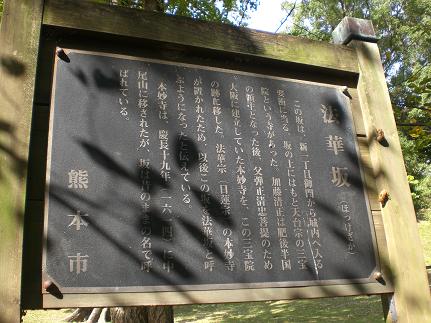 法華坂
(ほっけざか)
この坂は、新二丁目御門から城内へ入る
要衝に当る。坂の上にはもと天台宗の三宝
院という寺があった。加藤清正は肥後半国
の領主となった後、父弾正清忠菩提のため
大阪に建立していた本妙寺を、この三宝院
の跡に移した。法華宗(日蓮宗)の本妙寺
が置かれたため、以後この坂を法華坂と呼
ぶようになったと伝えている。
本妙寺は、慶長十九年(一六一四)に中
尾山に移されたが、坂は昔のままの名で呼
ばれている。
熊本市